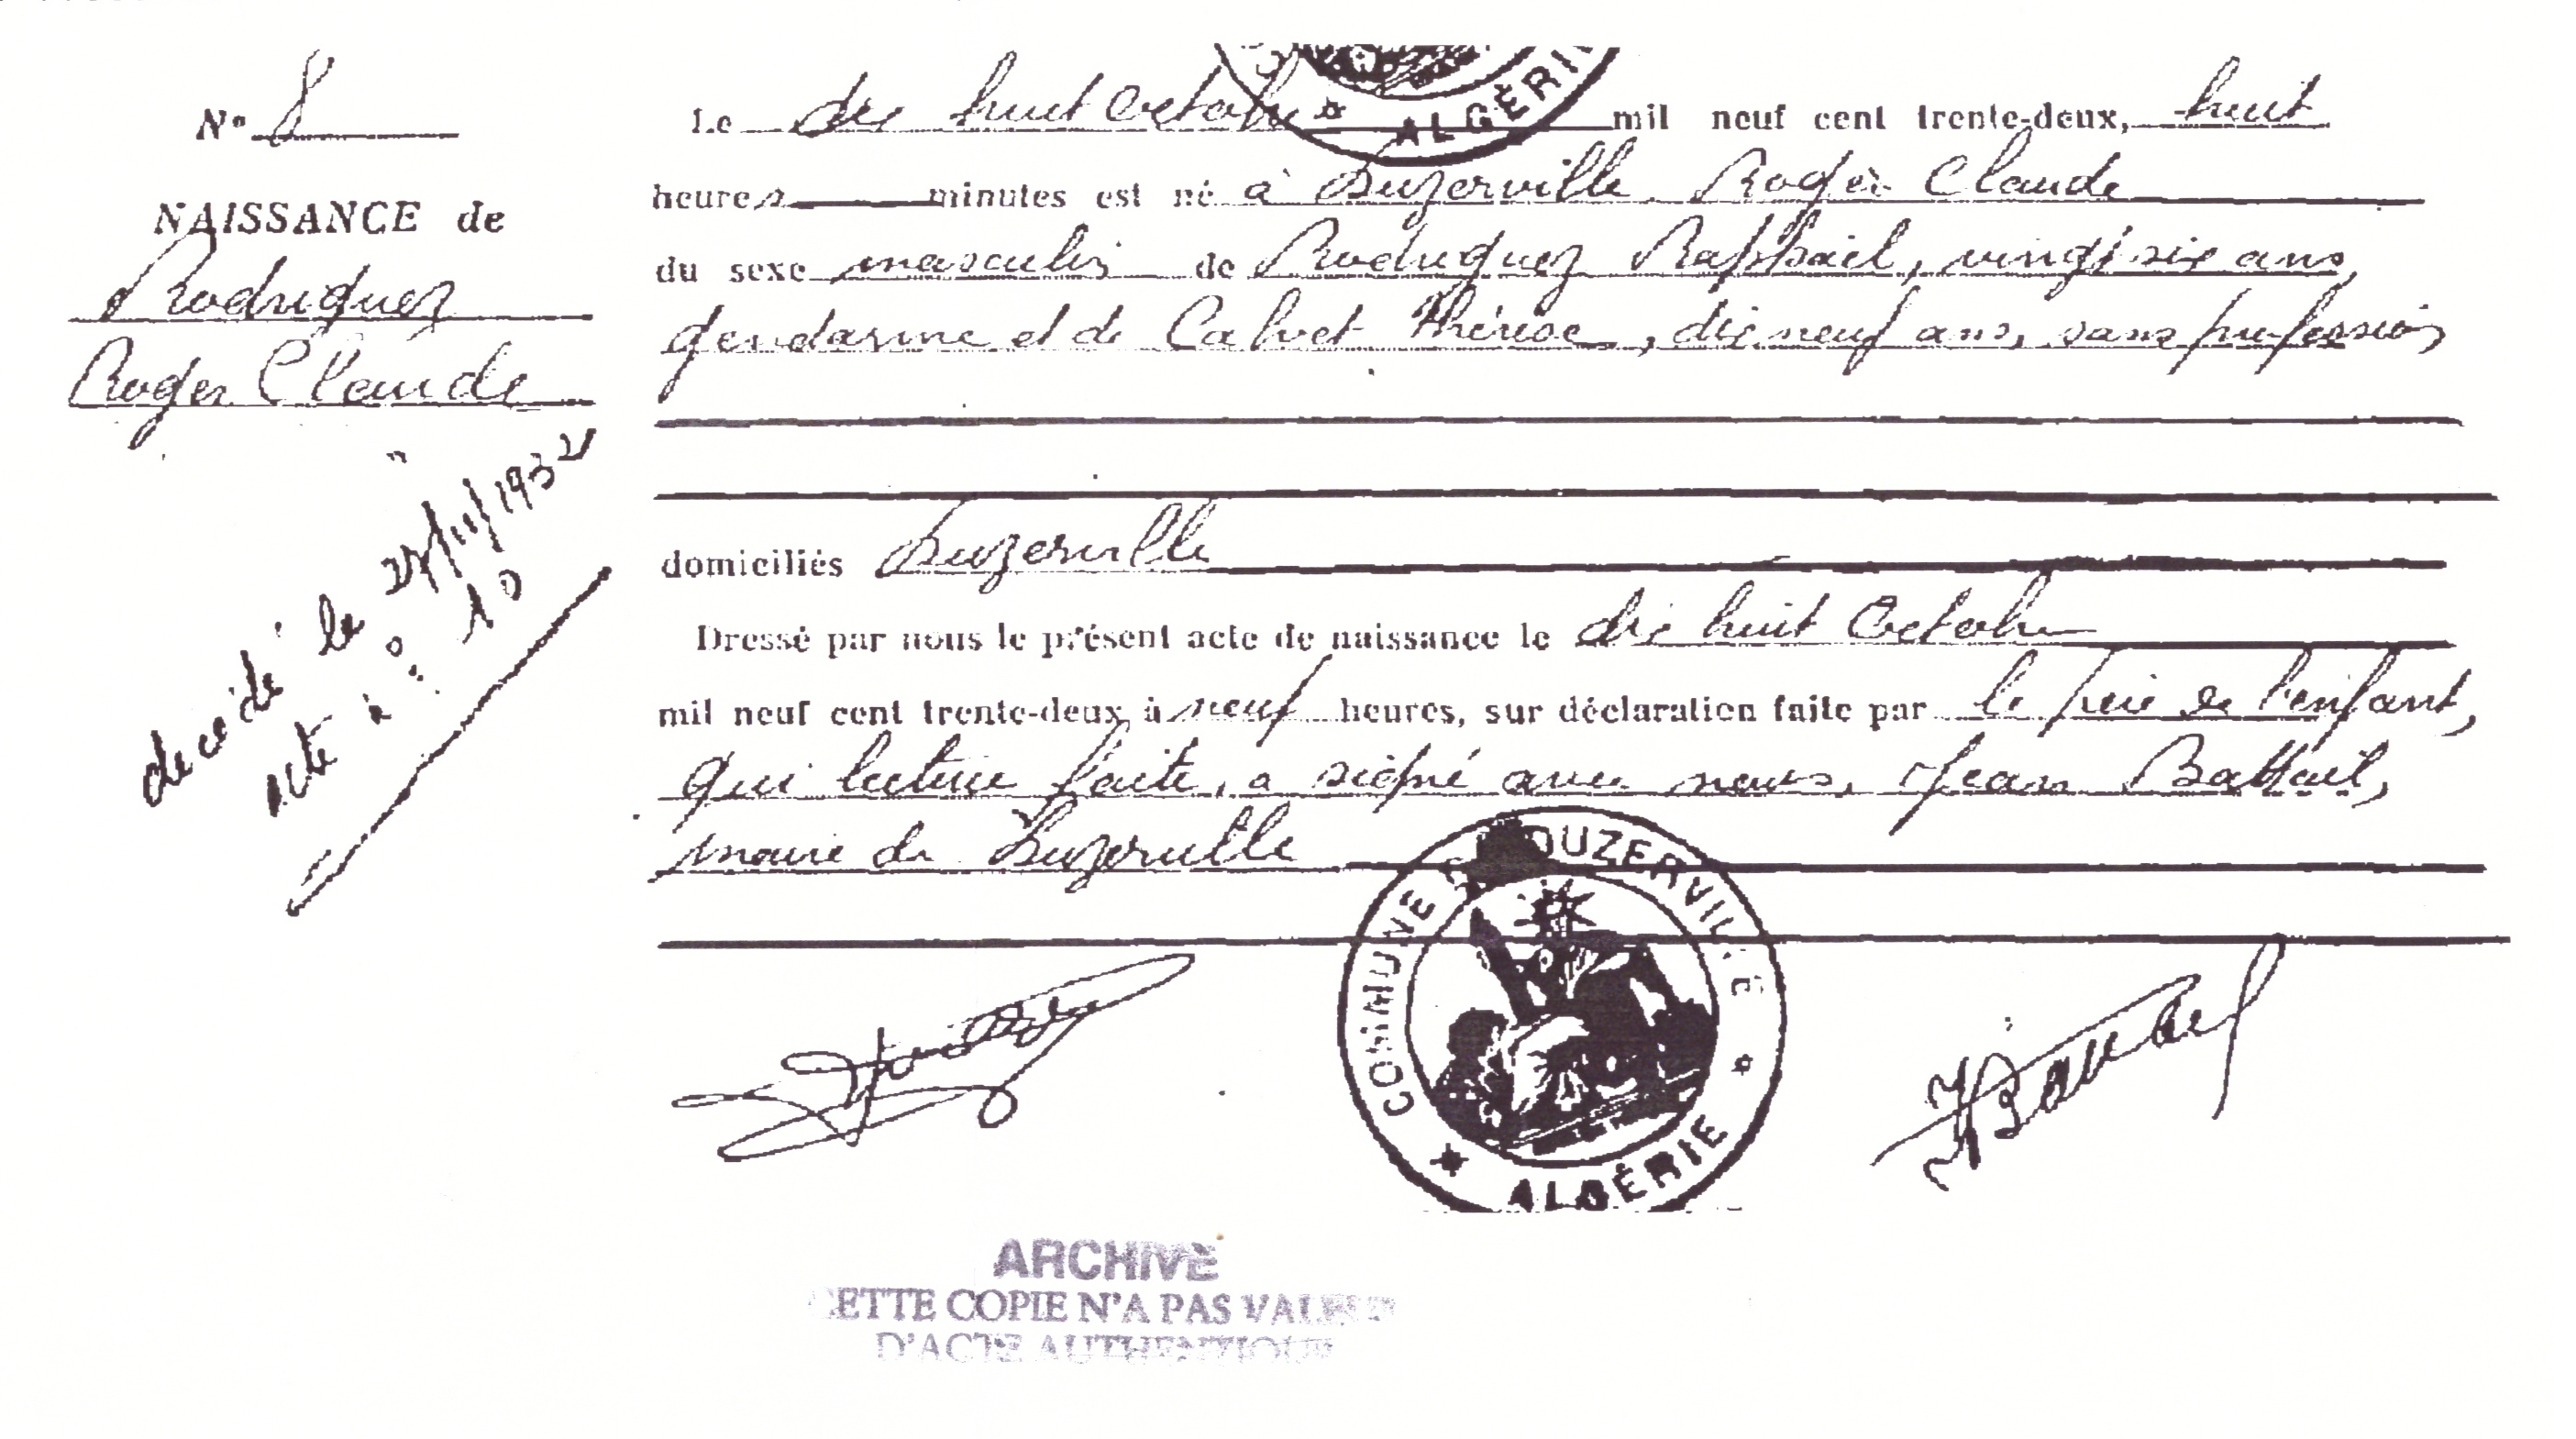 N° 8
NAISSANCE de
Rodriguez
Roger Claude
decédé le 27/10/1932
acte n° : 10
ALGÉRI
Le dix huit Octobre mil neuf cent trente-deux, huit
heures minutes est né à Duzerville Roger Claude
du sexe masculin de Rodriguez Raphaël, vingt six ans,
gendarme et de Calvet Thérèse, dix neuf ans, sans profession
domiciliés Duzerville
Dressé par nous le présent acte de naissance le dix huit Octobre
mil neuf cent trente-deux à neuf heures, sur déclaration faite par le père de l'enfant,
qui lecture faite, a signé avec nous, Jean
maire de Duzerville
COMMUNE OUZERVILLE
ALGÉRIE
ARCHIVE
CETTE COPIE N'A PAS VALEUR
D'ACTE AUTHENTIQUE